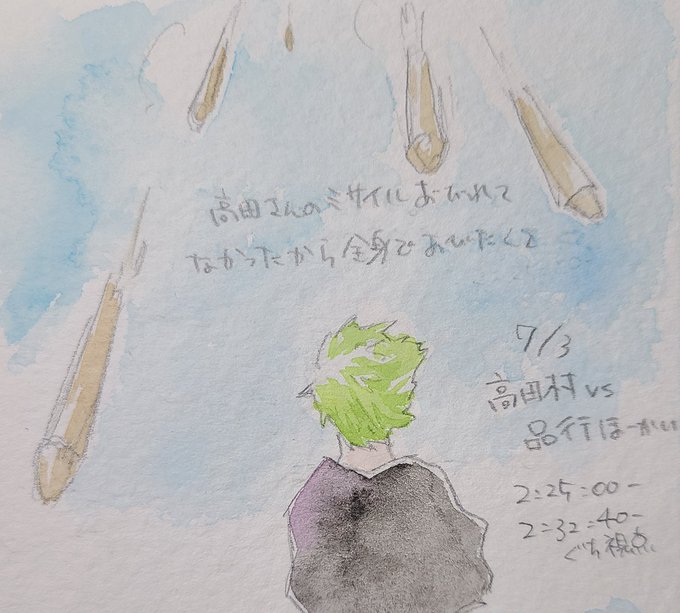 高田さんのミサイルあびれて
なかったから全身であびたくて
7/3
高田村vs
品行ほーかい
2:25:00-
2:32:40-
ぐち視点